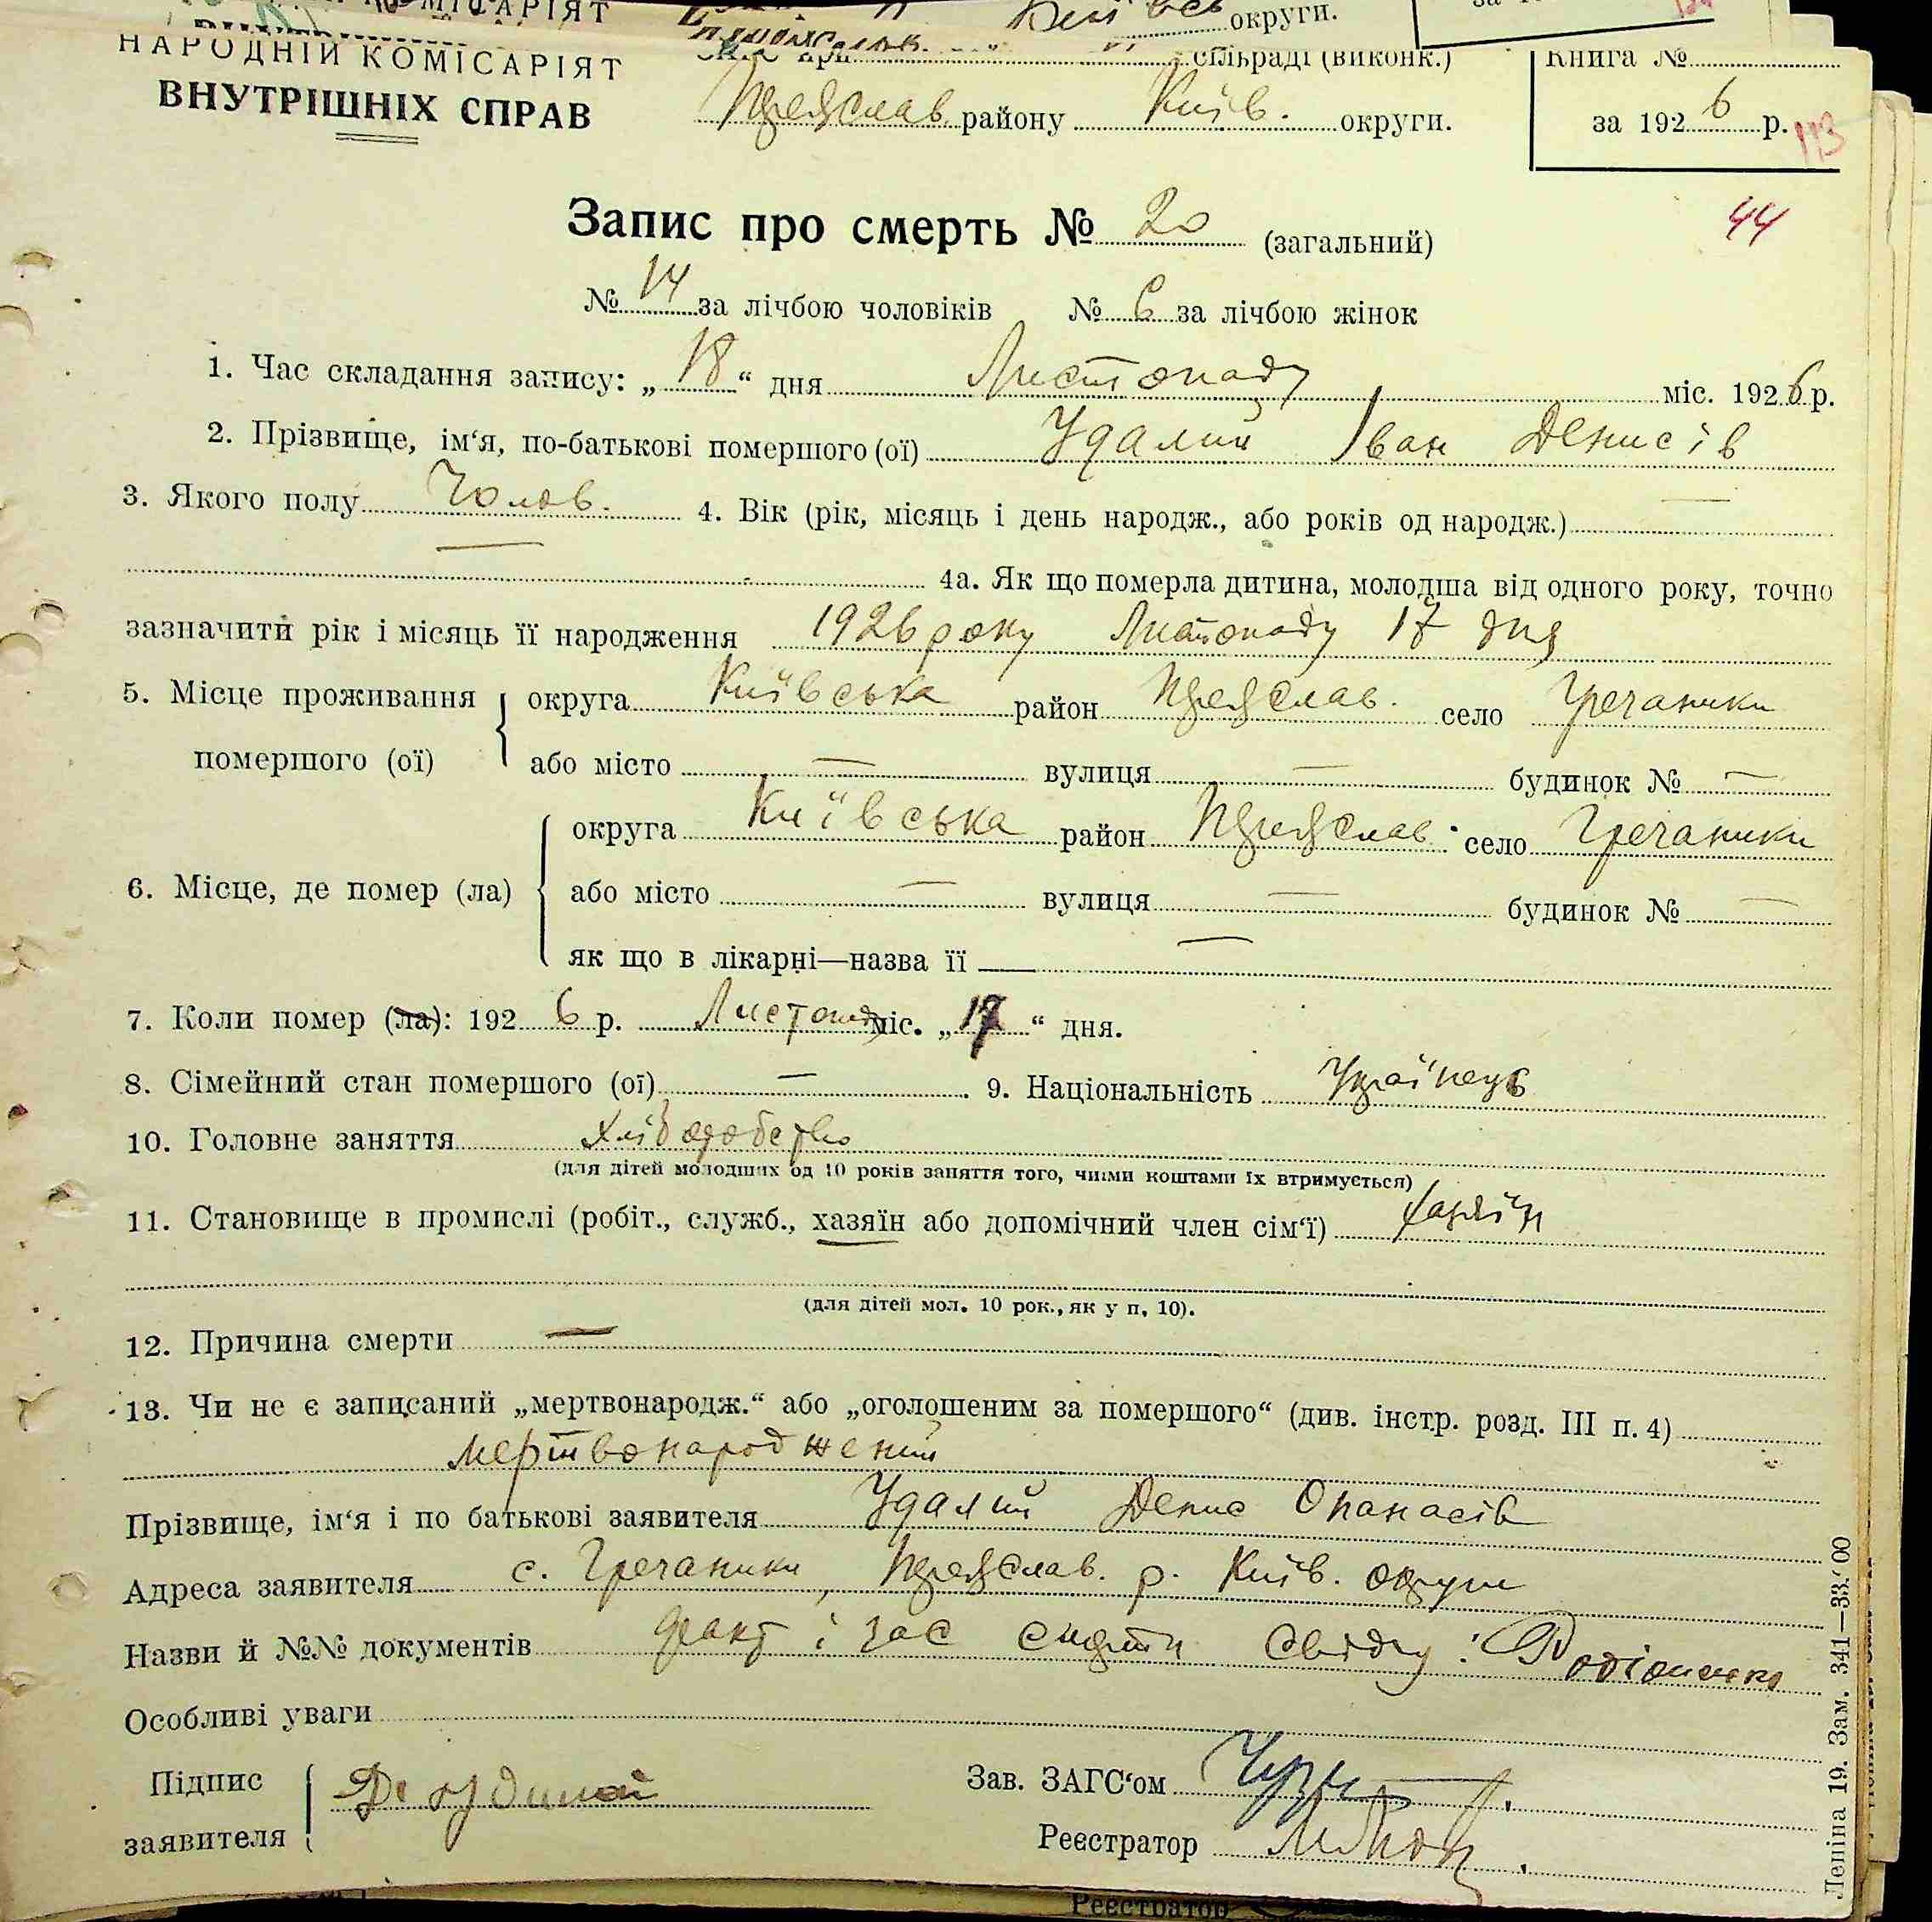 КОМІСАРІЯТ
округи.
НАРОДНІЙ КОМІСАРІЯТ
ВНУТРІШНІХ СПРАВ
сільраді (виконк.)
Книга №
району Київ. округи.
за 1926 р.
113
44
Запис про смерть № 20 (загальний)
№ 14 за лічбою чоловіків № 6 за лічбою жінок
1. Час складання запису: „18“ дня Листопаду міс. 1926 р.
2. Прізвище, ім‘я, по-батькові помершого (ої) Удалий Іван Денисів
3. Якого полу Чолов. 4. Вік (рік, місяць і день народж., або років од народж.) —
— 4а. Як що померла дитина, молодша від одного року, точно
зазначити рік і місяць її народження 1926 року Листопаду 17 дня
5. Місце проживання помершого (ої) округа Київська район село Гречаники
або місто — вулиця — будинок № —
6. Місце, де помер (ла) округа Київська район село Гречаники
або місто — вулиця — будинок № —
як що в лікарні—назва її —
7. Коли помер (ла): 1926 р. Листопаду міс. „17“ дня.
8. Сімейний стан помершого (ої) — 9. Національність Українець
10. Головне заняття Хліборобство
(для дітей молодших од 10 років заняття того, чиїми коштами їх втримується)
11. Становище в промислі (робіт., служб., хазяїн або допомічний член сім‘ї) хазяїн
(для дітей мол. 10 рок., як у п. 10).
12. Причина смерти —
13. Чи не є записаний „мертвонародж.“ або „оголошеним за помершого“ (див. інстр. розд. III п. 4)
мертвонароджений
Прізвище, ім‘я і по батькові заявителя Удалий Денис Опанасів
Адреса заявителя с. Гречаники, р. Київ. округи
Назви й №№ документів факт і час смерти
Особливі уваги
Підпис заявителя
Зав. ЗАГС‘ом
Реєстратор
Леніна 19. Зам. 341—33.
Реєстратор